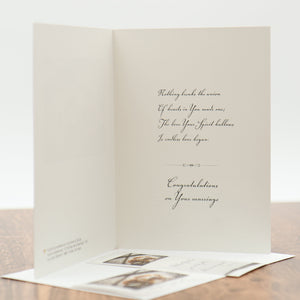 Nothing breaks the union
Of hearts in You made one;
The love Your Spirit hallows
In endless love begun.
Congratulations
on Your marriage